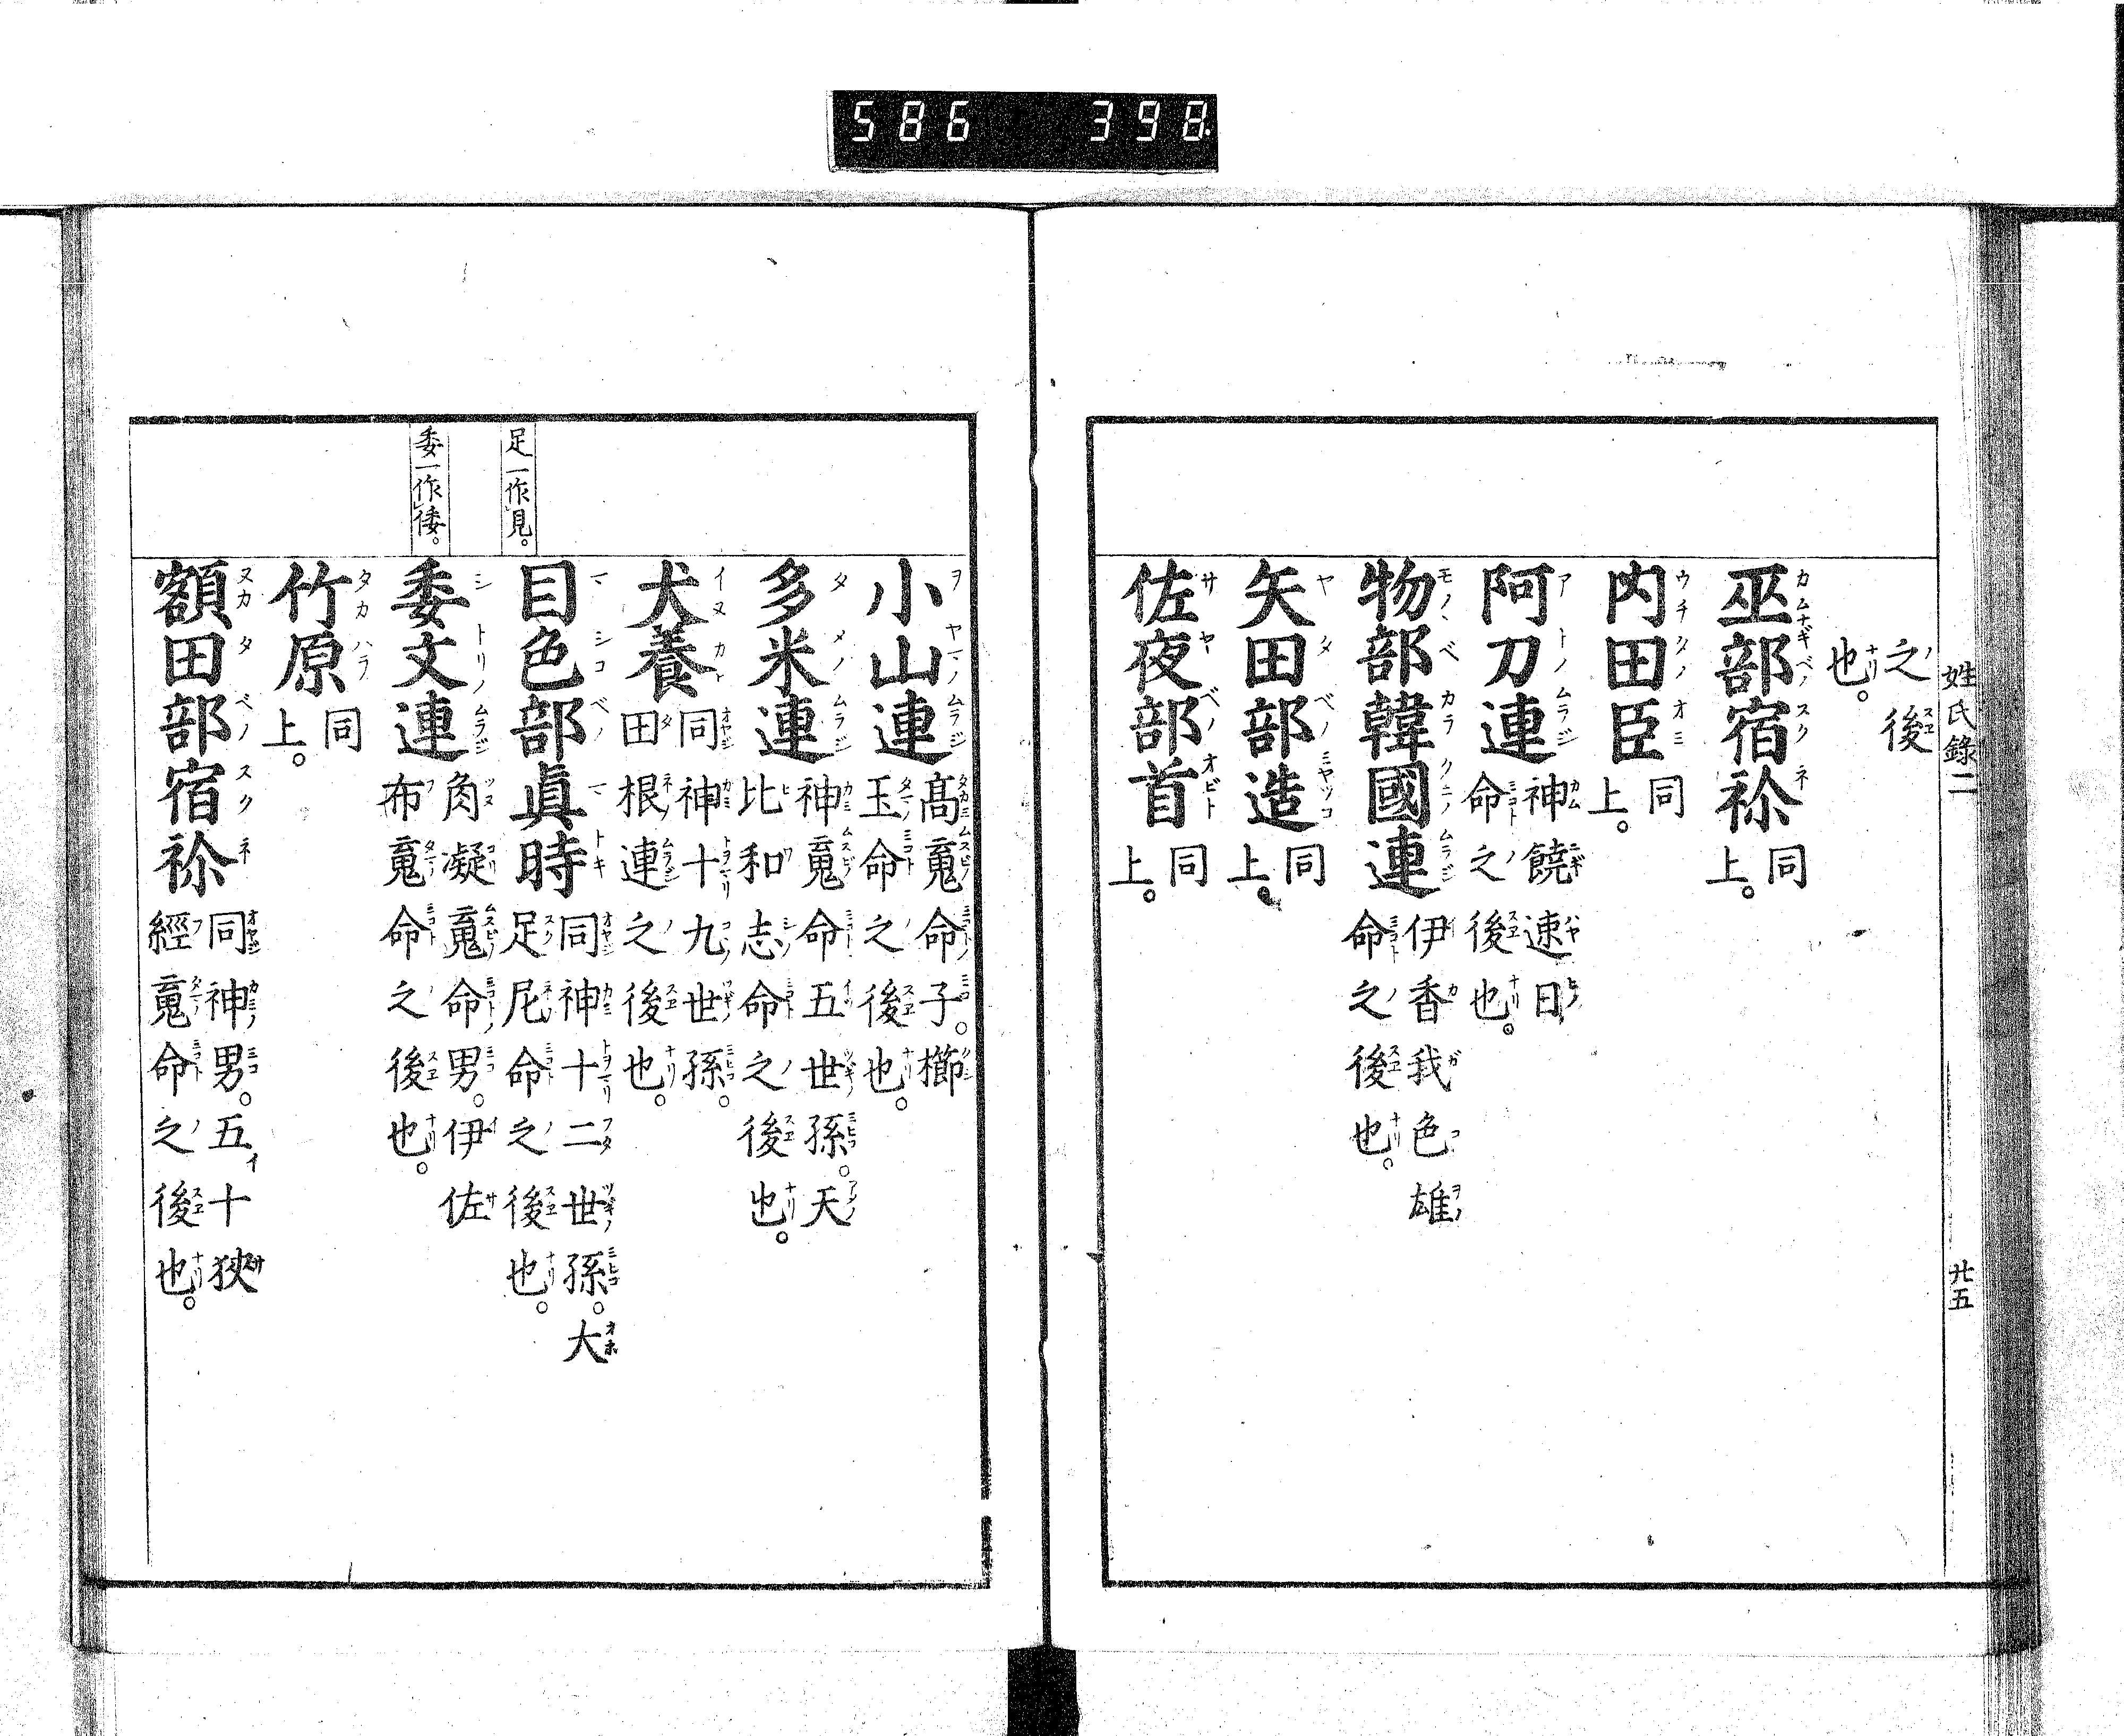 586 398
姓氏錄二
廿五
之後
也。
巫部宿祢
同
上。
内田臣
同
上。
阿刀連
神饒速日
命之後也。
物部韓國連
伊香我色雄
命之後也。
矢田部造
同
上。
佐夜部首
同
上。
小山連
髙䰟命子。櫛
玉命之後也。
多米連
神䰟命五世孫。天
比和志命之後也。
犬養
同神十九世孫。
田根連之後也。
足一作見。
目色部眞時
同神十二世孫。大
足尼命之後也。
委一作倭。
委文連
角凝䰟命男。伊佐
布䰟命之後也。
竹原
同
上。
額田部宿祢
同神男。五十狹
經䰟命之後也。